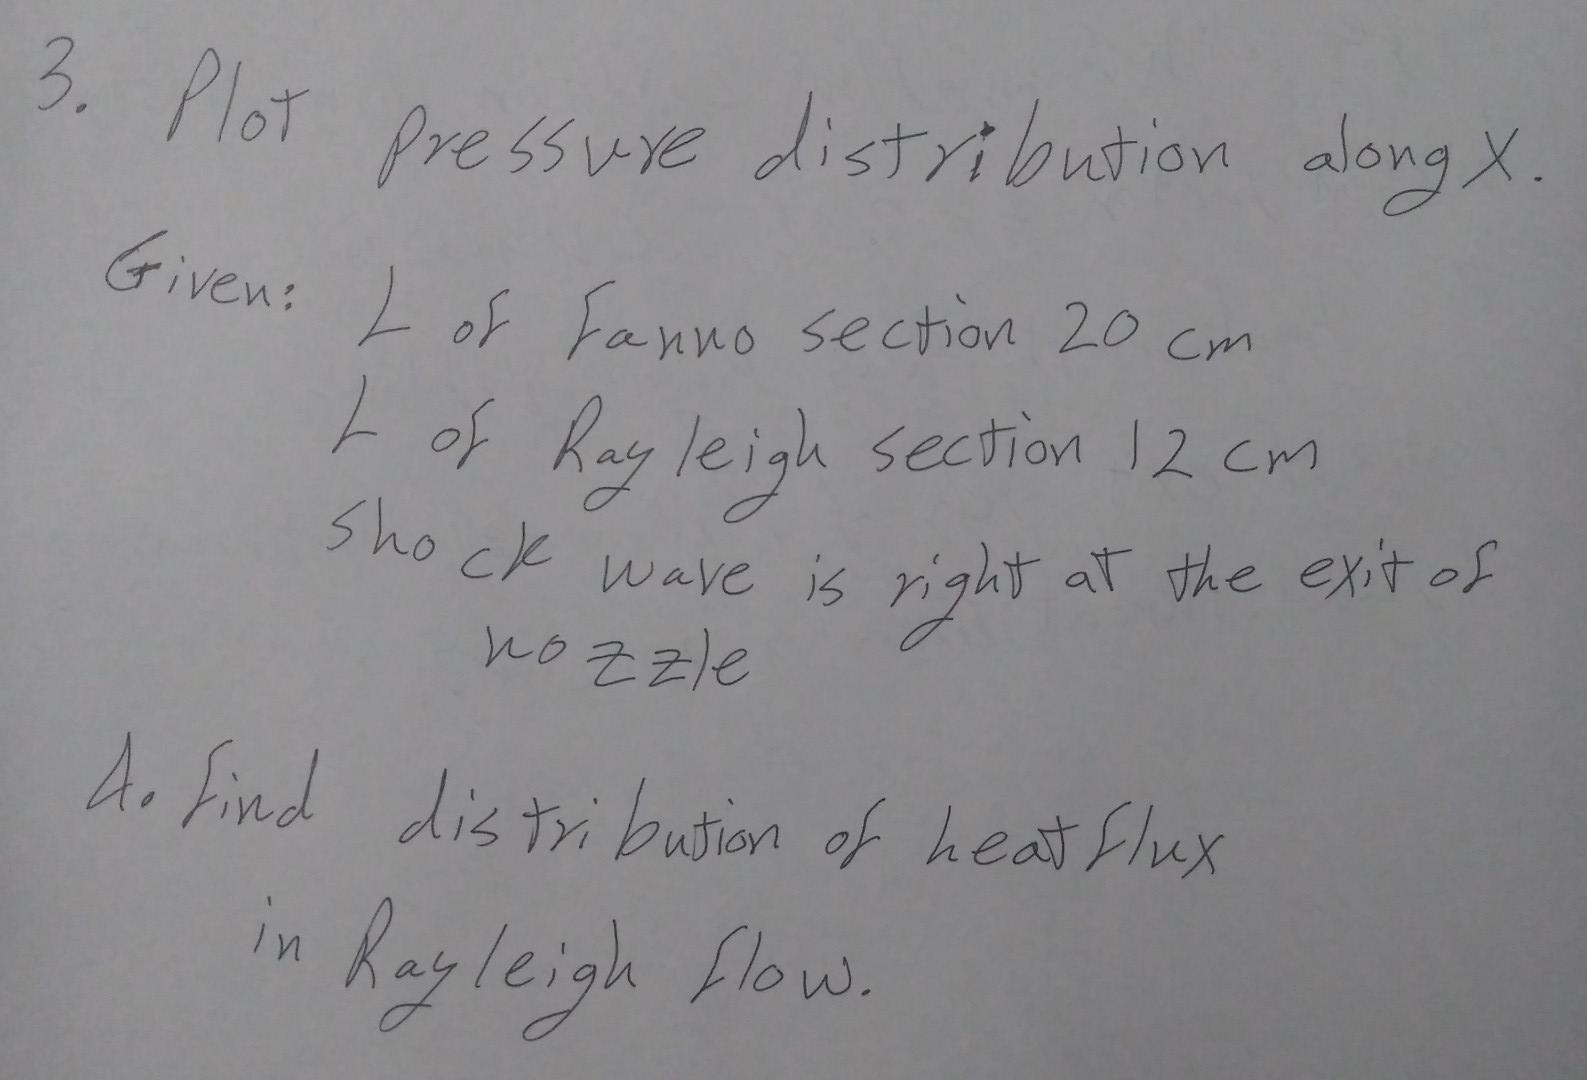 3. Plot pressure distribution along X.
Given: L of Fanno section 20 cm
L of Rayleigh section 12 cm
Shock wave is right at the exit of
nozzle
4. Find distribution of heat flux
in Rayleigh flow.